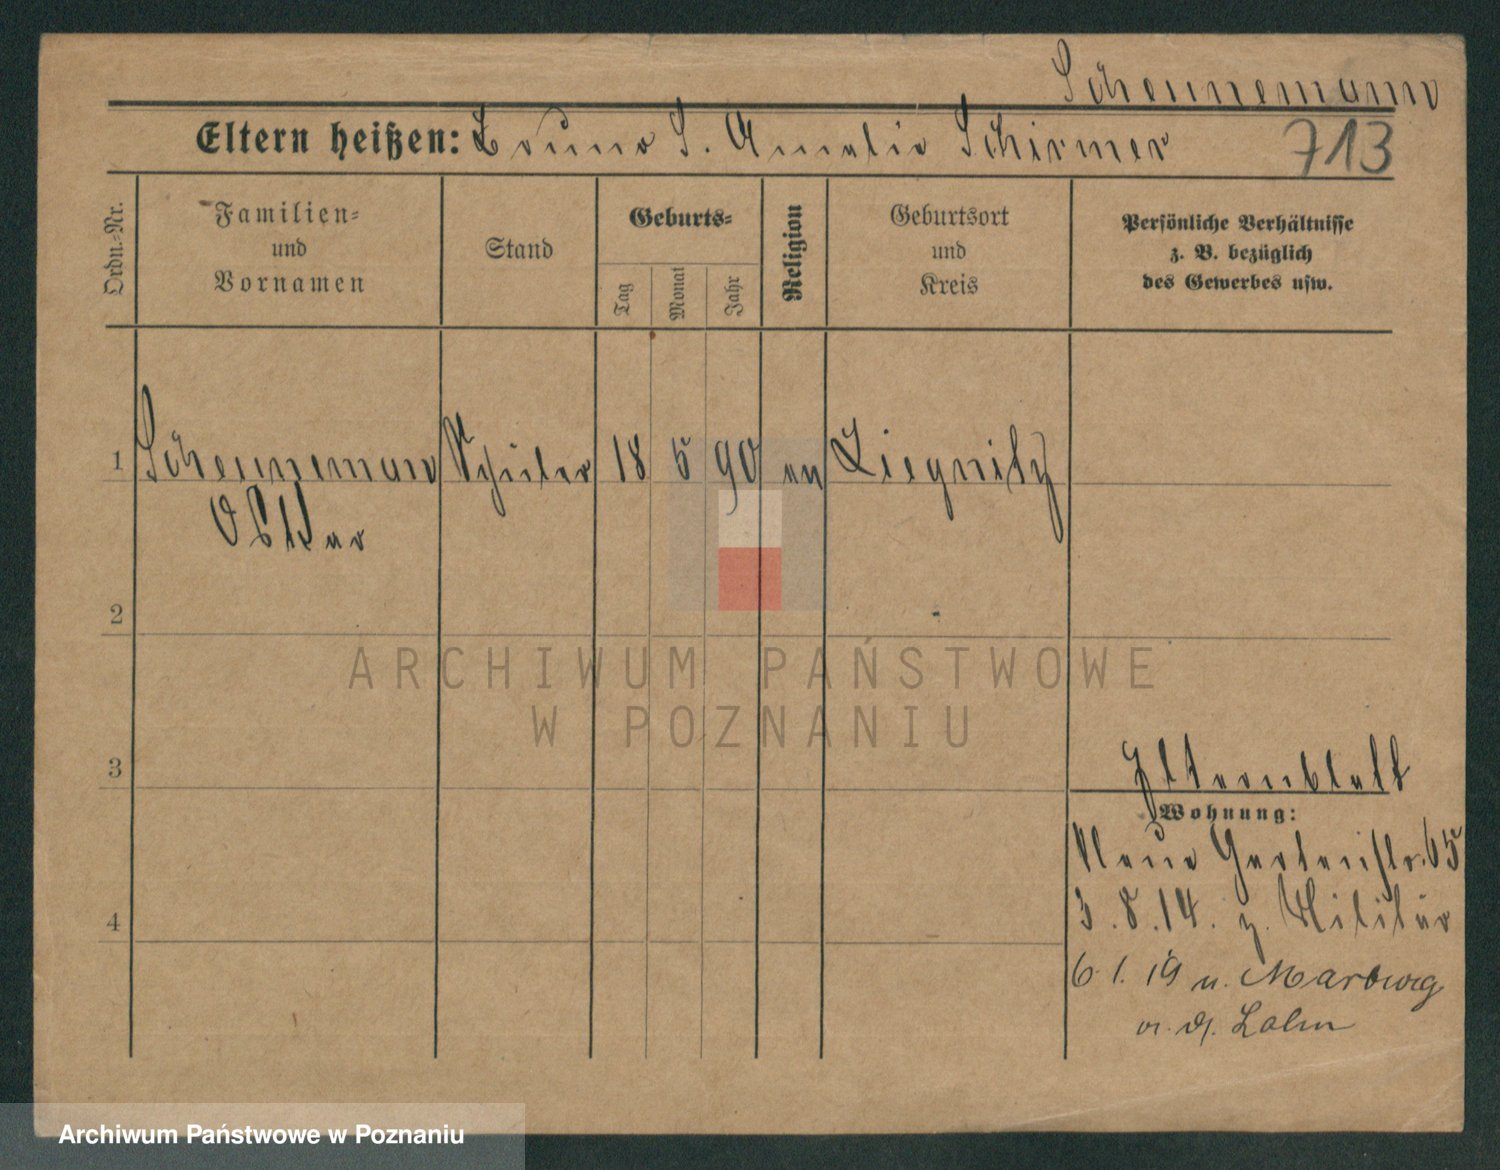 Scheunemann
Eltern heißen: Bruno S. Amalie Schirmer 713
Ordn.-Nr.
Familien-
und
Vornamen
Stand
Geburts-
Tag
Monat
Jahr
Religion
Geburtsort
und
Kreis
Persönliche Verhältnisse
z. B. bezüglich
des Gewerbes usw.
1 Scheunemann Schüler 18 5 90 ev Liegnitz
Oskar
2
ARCHIWUM PAŃSTWOWE
W POZNANIU
3
Elternblatt
Wohnung:
Neue Gartenstr. 65
3.8.14. z. Militär
4
6.1.19 n. Marburg
a. d. Lahn
Archiwum Państwowe w Poznaniu